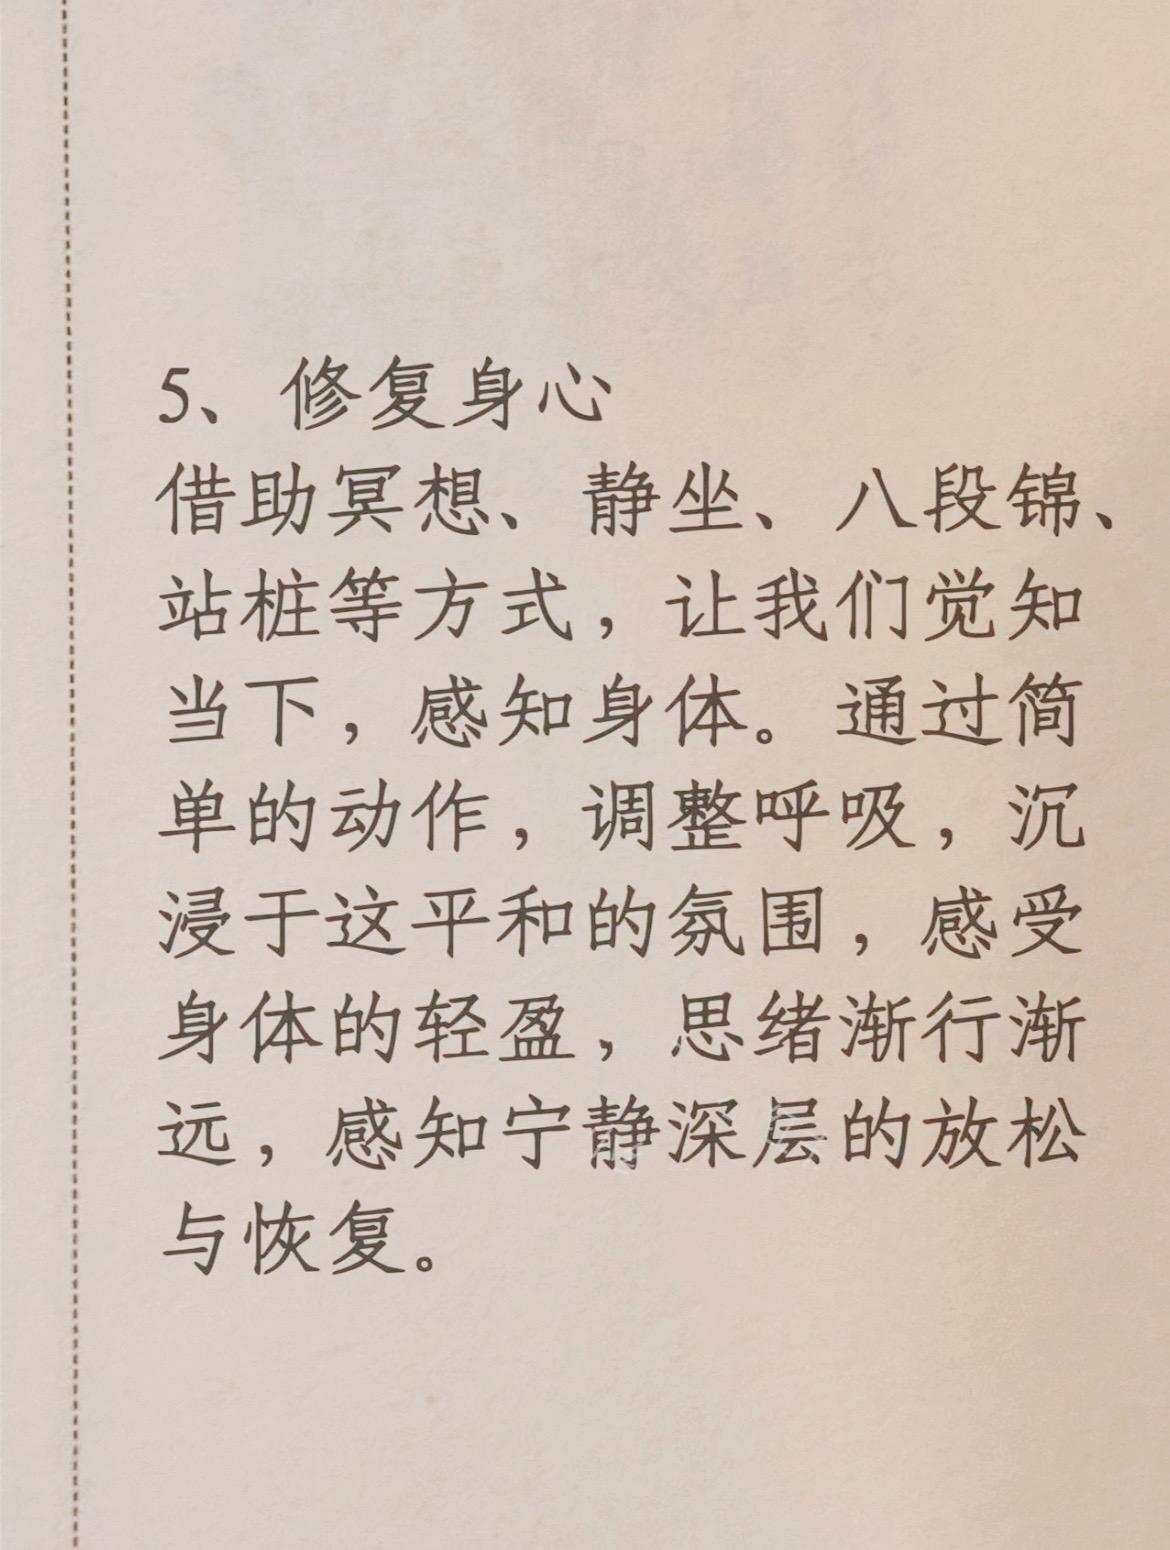 5、修复身心
借助冥想、静坐、八段锦、
站桩等方式，让我们觉知
当下，感知身体。通过简
单的动作，调整呼吸，沉
浸于这平和的氛围，感受
身体的轻盈，思绪渐行渐
远，感知宁静深层的放松
与恢复。